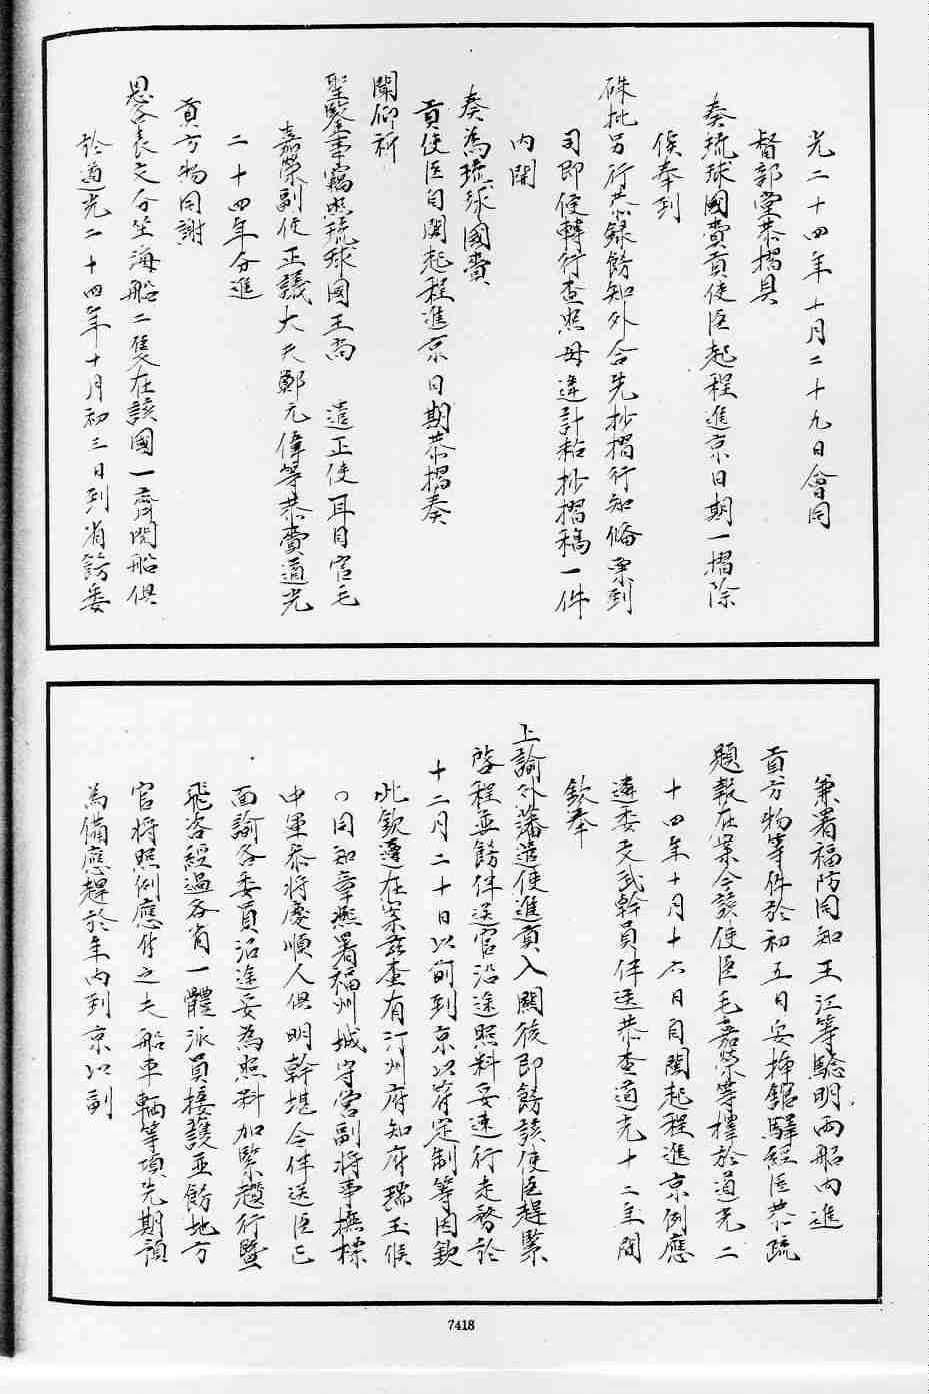 光二十四年十月二十九日會同
督部堂恭摺具
奏琉球國賫貢使臣起程進京日期一摺除
俟奉到
硃批另行恭錄飭知外合先抄摺行知脩案到
司即便轉行查照毋違計粘抄摺稿一件
內開
奏為琉球國賫
貢使臣自閩起程進京日期恭摺奏
聞仰祈
聖鑒事竊照琉球國王尚　遣正使耳目官毛
嘉榮副使正議大夫鄭元偉等恭賫道光
二十四年分進
貢方物同謝
恩各表文分坐海船二隻在該國一齊開船俱
於道光二十四年十月初三日到省飭委
兼署福防同知王江等驗明兩船內進
貢方物等件於初五日安挿舘驛經臣恭疏
題報在案今該使臣毛嘉榮等擇於道光二
十四年十月十六日自閩起程進京例應
遴委文武幹員伴送恭查道光十二年間
欽奉
上諭外藩遣使進貢入關後即飭該使臣趕緊
啓程並飭伴送官沿途照料妥速行走務於
十二月二十日以前到京以符定制等因欽
此欽遵在案茲查有汀州府知府瑞玉候
〇同知章燕署福州城守營副將事撫標
中軍叅將慶順人俱明幹堪令伴送臣已
面諭各委員沿途妥為照料加緊趲行暨
飛咨經過各省一體派員接護並飭地方
官將照例應付之夫船車輛等項先期預
為備應趕於年內到京以副
7418